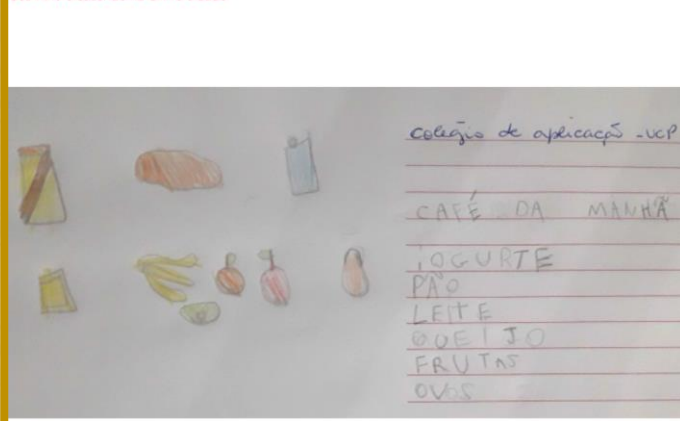 Colégio de aplicação - UCP
CAFÉ DA MANHÃ
IOGURTE
PÃO
LEITE
QUEIJO
FRUTAS
OVOS